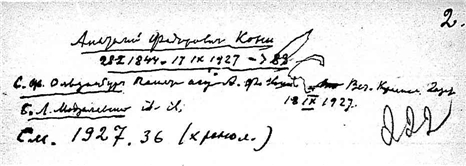 2.
Анатолий Федорович Кони
28 I 1844 - 17 IX 1927 -> 83
С. Ф. Ольденбург Памяти А. Ф. Кони Веч. Красная Газ.
18 IX 1927.
Б. Л. Модзалевский id. id.
См. 1927. 36 (хронол.)